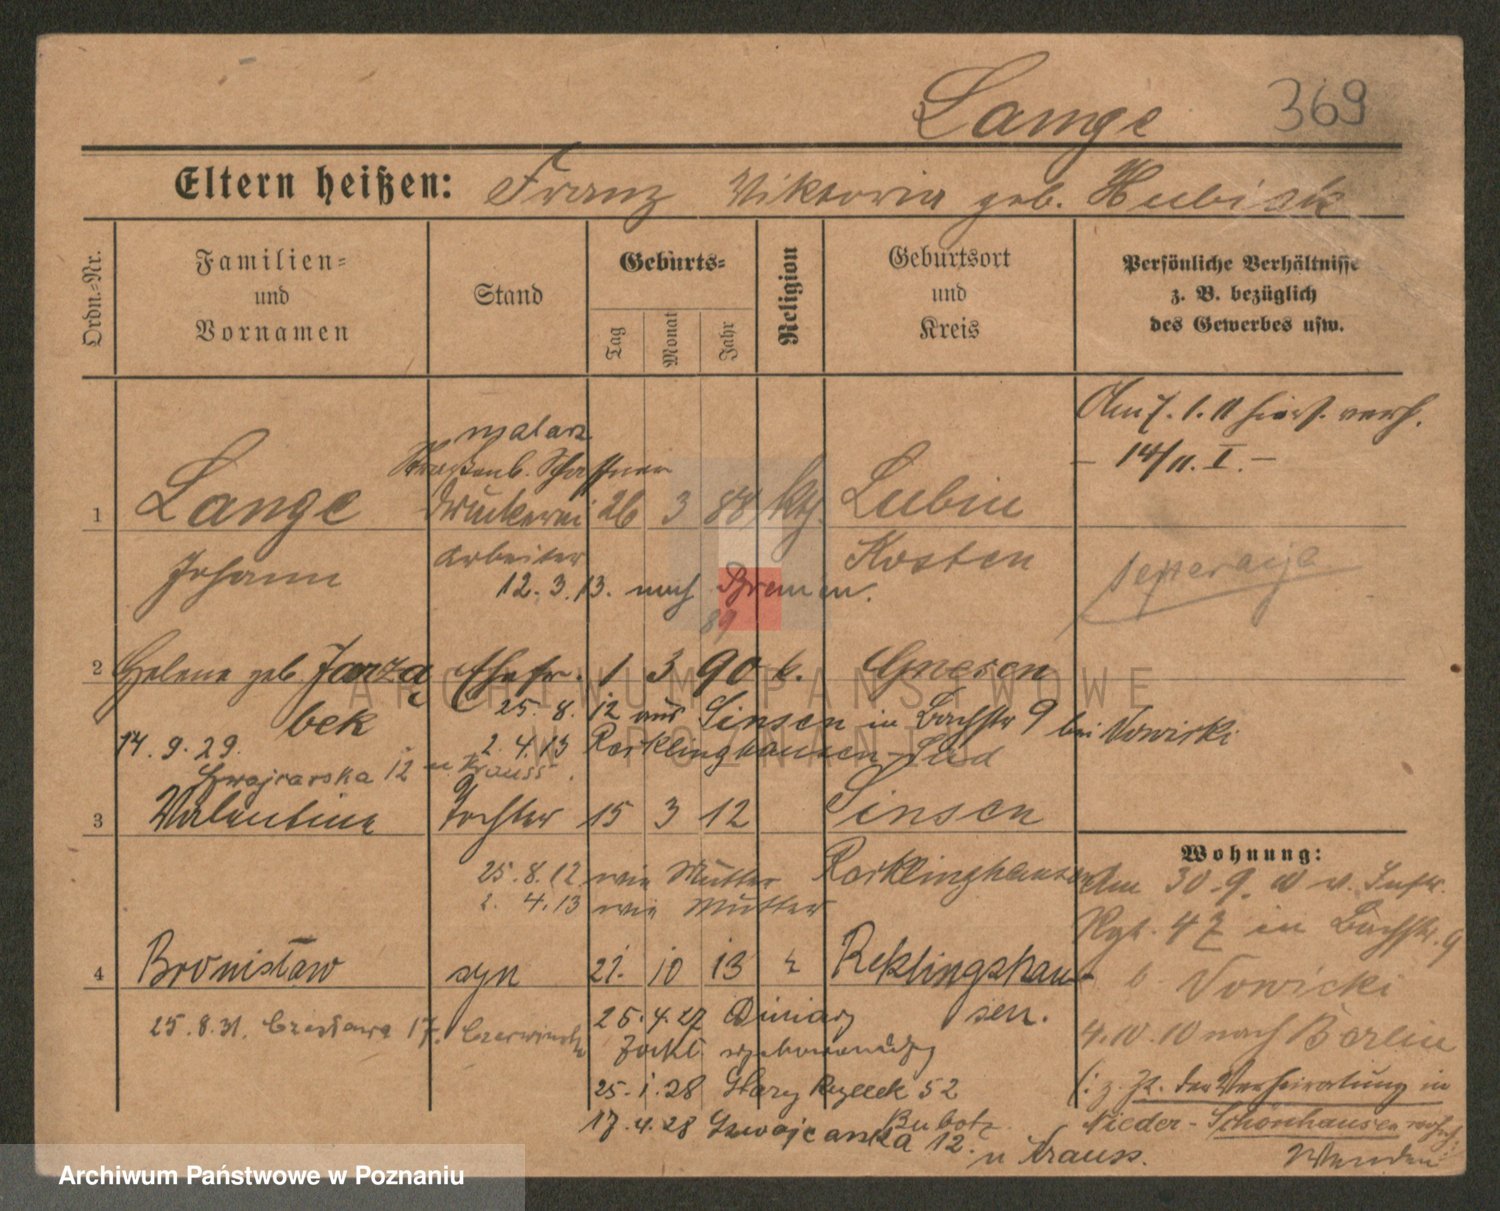 Lange 369
Eltern heißen: Franz Viktoria geb. Hubiak
Ordn.-Nr.
Familien-
und
Vornamen
Stand
Geburts-
Tag
Monat
Jahr
Religion
Geburtsort
und
Kreis
Persönliche Verhältnisse
z. B. bezüglich
des Gewerbes usw.
Am 7. 1. 11 hier verh.
– 14/11. I. –
malarz
Straßenb. Schaffner
1 Lange Druckerei 26 3 88 kth. Lubin
Johann Arbeiter Kosten
12. 3. 13. nach Bremen.
seperacja
89
2 Helene geb. Jarzą Ehefr. 1 3 90 k. Gnesen
bek
25. 8. 12 aus Sinsen in Bachstr 9 bei Nowicki
14. 9. 29. 2. 4. 13 Recklinghausen-Süd
Szwajcarska 12 u Krauss.
3 Valentine Tochter 15 3 12 Sinsen
Recklinghausen
25. 8. 12 wie Mutter
2. 4. 13 wie Mutter
4 Bronisław syn 21. 10 13 Reklingshau-
sen.
25. 8. 31. Czesława 17.
26. 4. 27
Zakł.
25. 1. 28 52
17. 4. 28 Szwajcarska 12.
u Krauss.
Wohnung:
Am 30. 9. 10 v. Inftr.
Rgt. 47 in Bachstr. 9
b Nowicki
4. 10. 10 nach Berlin
(: z. Zt. der Verheiratung in
Nieder-Schönhausen
ARCHIWUM PAŃSTWOWE
W POZNANIU
Archiwum Państwowe w Poznaniu